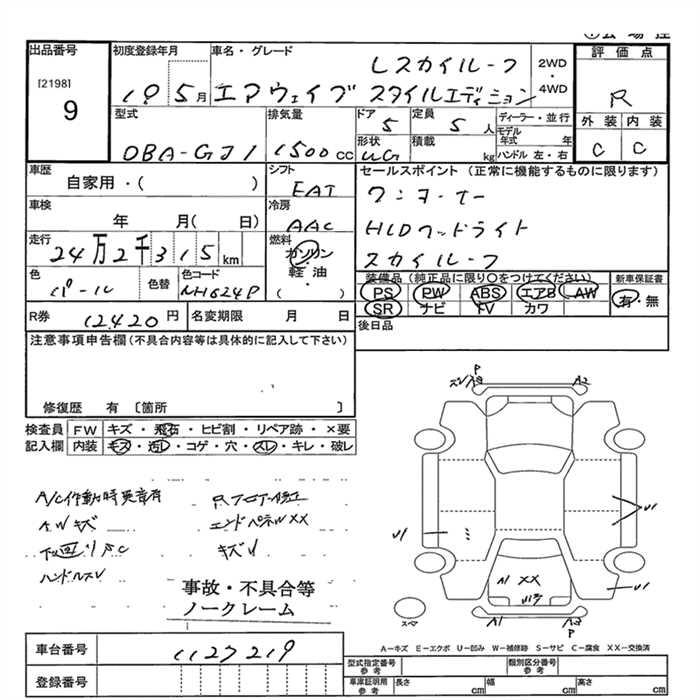 出品番号
[2198]
9
初度登録年月
19. 5月
車名・グレード
Lスカイルーフ
エアウェイブ スタイルエディション
2WD
・
4WD
評価点
R
外装 内装
C C
型式
DBA-GJ1
排気量
1500 CC
ドア
5
定員
5 人
ディーラー・並行
モデル年式 年
形状
WG
積載
kg
ハンドル 左・右
車歴
自家用・( )
シフト
FAT
セールスポイント (正常に機能するものに限ります)
ワンオーナー
HIDヘッドライト
スカイルーフ
車検
年 月( 日)
冷房
AAC
走行
24万2千315 km
燃料
ガソリン
・
軽油
( )
色
パール
色替
色コード
NH624P
装備品 (純正品に限り○をつけてください)
PS PW ABS エアB AW
SR ナビ TV カワ
新車保証書
有・無
R券
12420 円
名変期限 月 日
後日品
注意事項申告欄 (不具合内容等は具体的に記入して下さい)
修復歴 有 〔箇所 〕
検査員記入欄
FW キズ・飛石・ヒビ割・リペア跡・×要
内装 キズ・汚レ・コゲ・穴・スレ・キレ・破レ
A/C作動時異音有
A.Wキズ
下回りS.C
ハンドルスレ
R.フロアー修正
エンドパネルXX
キズU
事故・不具合等
ノークレーム
P
A2
U1
U1
U1
A1 XX
スペア
A1
A2
P
A−キズ E−エクボ U−凹み W−補修跡 S−サビ C−腐食 XX−交換済
車台番号
1127219
登録番号
型式指定番号
参考
類別区分番号
参考
車庫証明用
参考
長さ cm
幅 cm
高さ cm